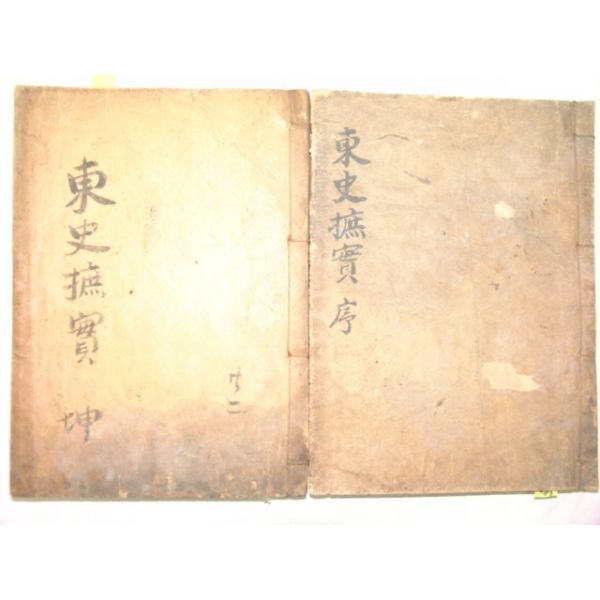 東史摭實 坤
共二
東史摭實 序